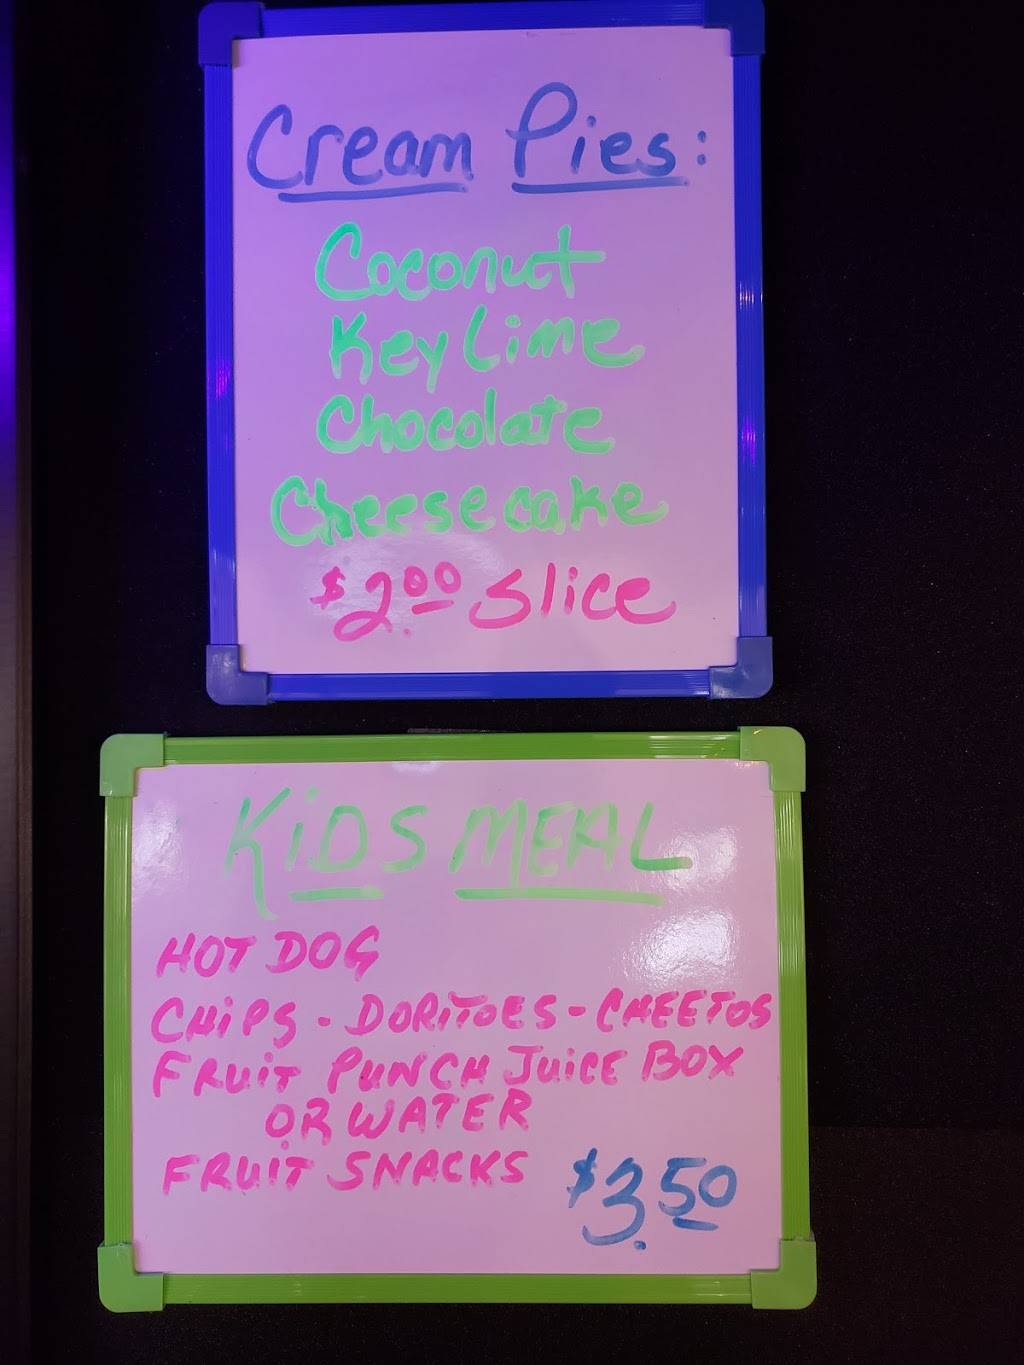 Cream Pies:
Coconut
Key Lime
Chocolate
Cheesecake
$2.00 slice
KiDS MEAL
HOT DOG
CHiPS - DORiTOES - CHEETOS
FRUiT PUNCH JUiCE BOX
OR WATER
FRUiT SNACKS
$3.50